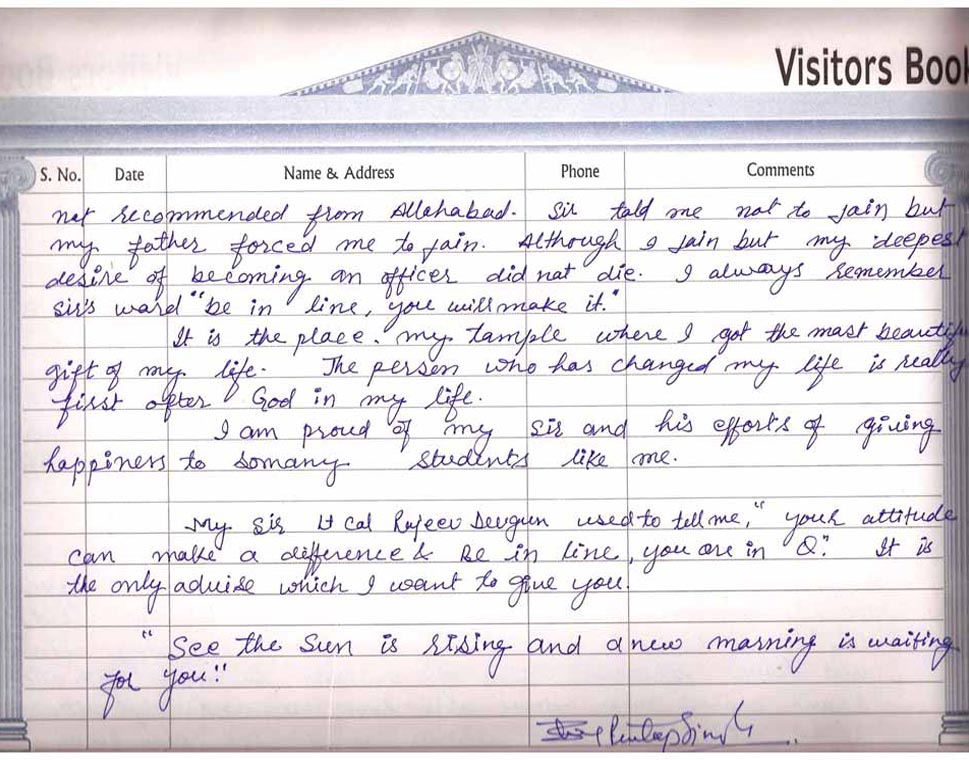 Visitors Book
S. No. Date Name & Address Phone Comments
not recommended from Allahabad. Sir told me not to join but
my father forced me to join. Although I join but my deepest
desire of becoming an officer did not die. I always remember
sir's word "be in line, you will make it."
It is the place. my tample where I got the most beautif
gift of my life. The person who has changed my life is really
first after God in my life.
I am proud of my Sir and his efforts of giving
happiness to somany students like me.
My Sir Lt Col Rajeev Devgun used to tell me, "your attitude
can make a difference & Be in line, you are in Q." It is
the only advise which I want to give you.
"See the Sun is rising and a new morning is waiting
for you."
Singh